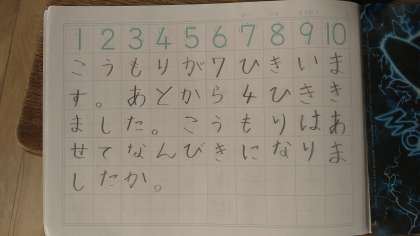 1 2 3 4 5 6 7 8 9 10
こうもりが7ひきいま
す。あとから4ひきき
ました。こうもりはあ
せてなんびきになりま
したか。